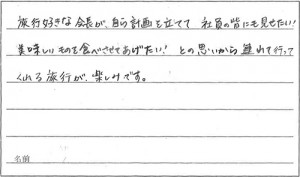 旅行好きな会長が、自ら計画を立てて 社員の皆にも見せたい!
美味しいものを食べさせてあげたい! との思いから連れて行って
くれる旅行が、楽しみです。
名前